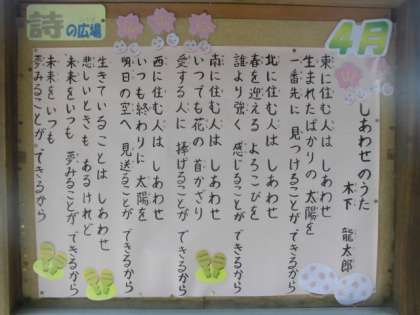 詩の広場
4月
しあわせのうた
木下 龍太郎
東に住む人は しあわせ
生まれたばかりの 太陽を
一番先に 見つけることが できるから
北に住む人は しあわせ
春を迎える よろこびを
誰より強く 感じることが できるから
南に住む人は しあわせ
いつでも花の 首かざり
愛する人に 捧げることが できるから
西に住む人は しあわせ
いつも終わりに 太陽を
明日の空へ 見送ることが できるから
生きていることは しあわせ
悲しいときも あるけれど
未来をいつも 夢みることが できるから
未来をいつも
夢みることが できるから